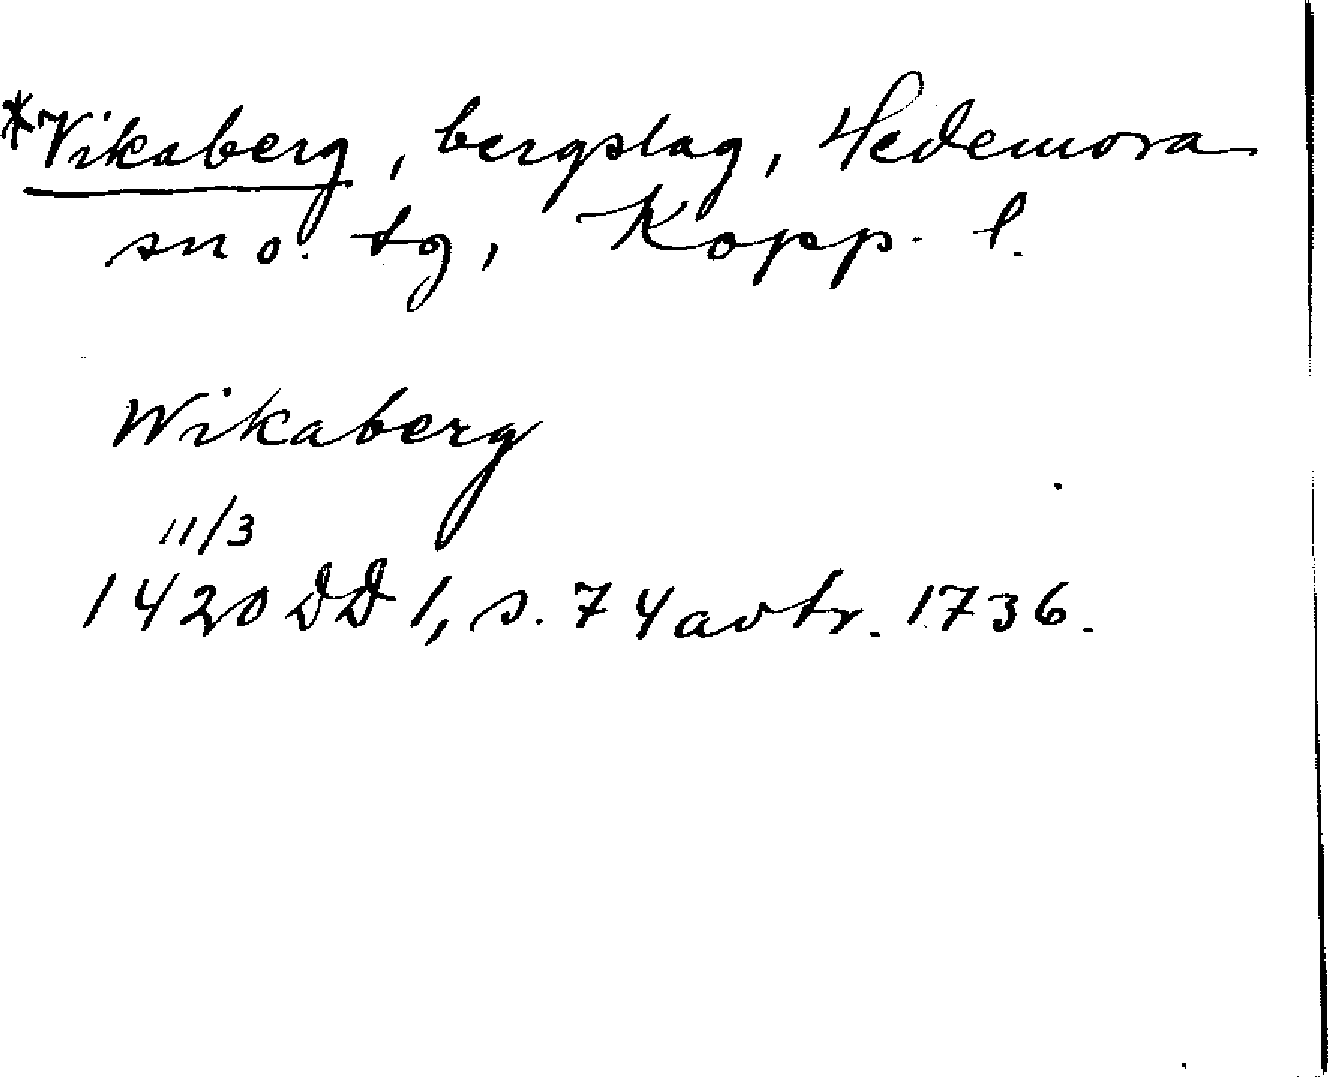 *Vikaberg, bergslag, Hedemora
sn o. tg, Kopp. l.
Wikaberg
11/3
1420 DD 1, s. 74 avtr. 1736.